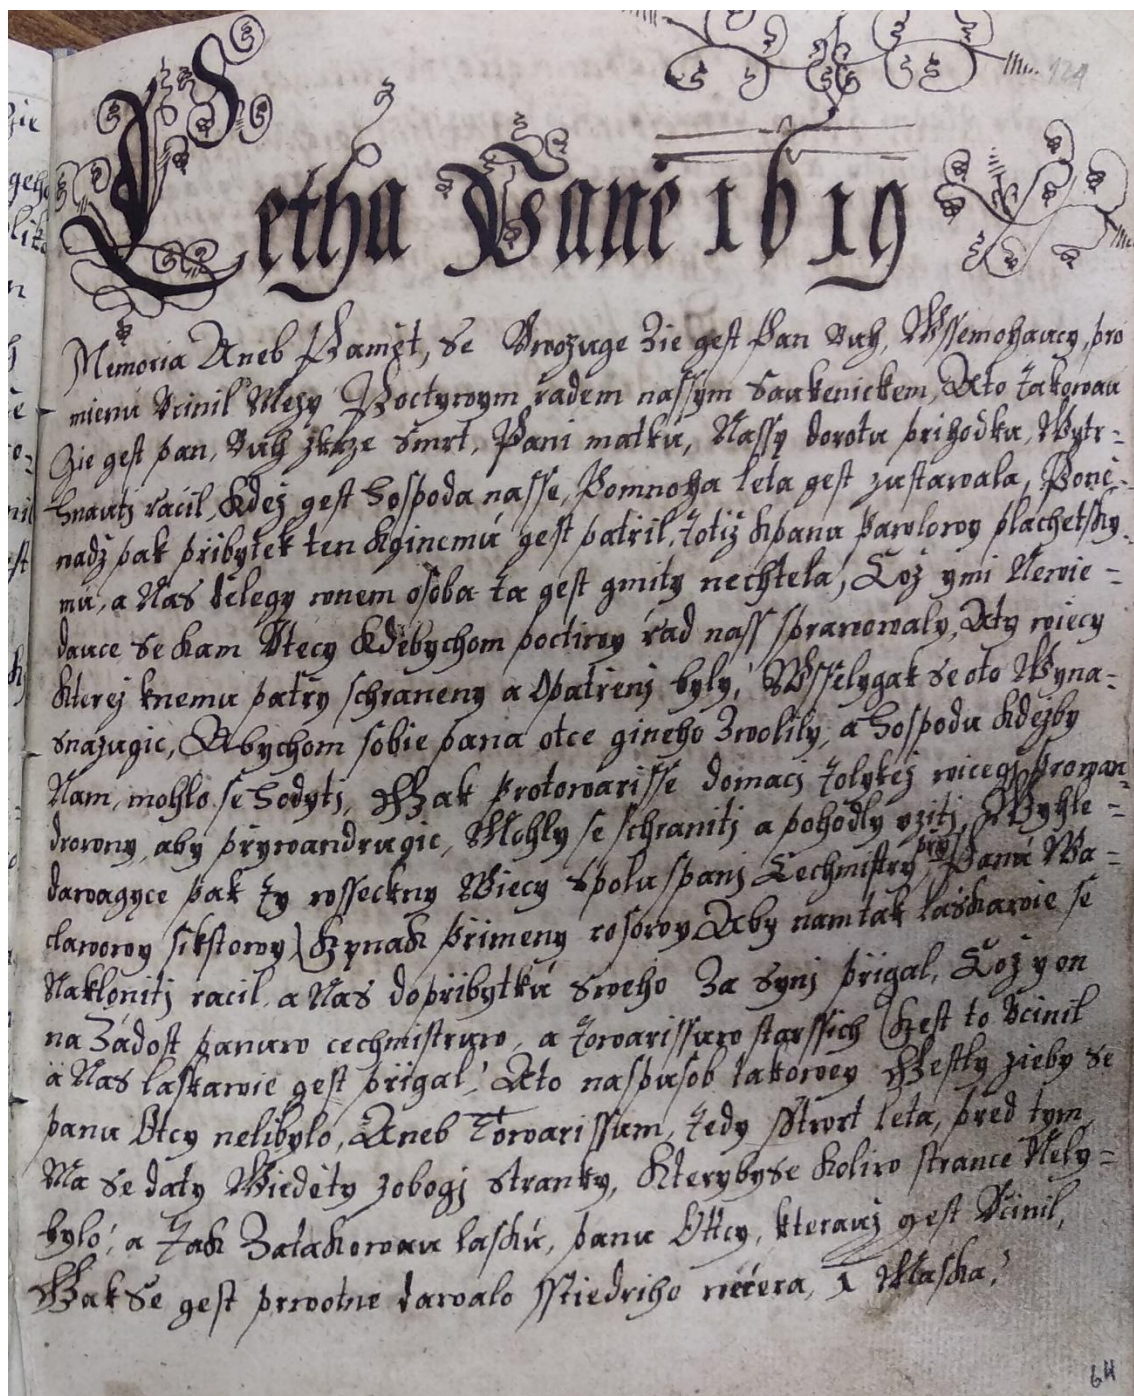 124
Letha Páne 1619
Memoria Aneb Pamět, se Uwozuge Zie gest Pan Buh, Wssemohaucy, pro
mienu Ucinil Mezy Poctywym řadem nassym Saukenickem, Ato takowau
Zie gest pan, Buh skrze Smrt, Pani matku, Nassy dorotu prihodku, Wytr=
hnauti racil, Kdež gest hospoda nasse, Pomnoha leta gest zustawala, Ponē=
nadž pak pribytek ten kginemú gest patril, totiž kpanu pawlowy plachetsky=
mu, a Nas delegy wnem osoba ta gest gmity nechtela, Což ymi Newie=
dauce se kam Utecy kdebychom poctiwy řad nass sprawowaly, Aty wiecy
kterež knemu patry schraneny a Opatreni byly, Wsselygak se oto Wyna=
snazugic, Abychom sobie pana otce gineho Zwolily, a hospodu kdežby
Nam, mohlo se hodyti, Gak protowarisse domaci tolykéž wicegi prowan=
drowny, aby prywandrugic, Mohly se schraniti a pohodly uziti, Wyhle=
dawagyce pak ty wsseckny Wiecy Spolu spani Cechmistry przy Panú Wa=
clawowy sikstowy) kynak přimeny rosowy Aby nam tak laskawie se
Nakloniti racil, a Nas dopribytkú sweho Za Syni přigal, Což y on
na Zádost panuw cechmistruw, a towarissuw starssich Gest to Ucinil
á Nas laskawie gest přigal, Ato naspusob takowey Gestly zieby se
panu Otcy nelibylo, Aneb Towarissum, tedy sstwrt leta, před tym,
Ma se daty Wieděty zobogi stranky, Kterybyse koliw strance Nely=
bylo, a tak Zatakowau laskú, panu Ottcy, kterauž gest Ucinil,
Gak se gest prwotne dawalo sstiedriho wečera, 1 Maska,
64